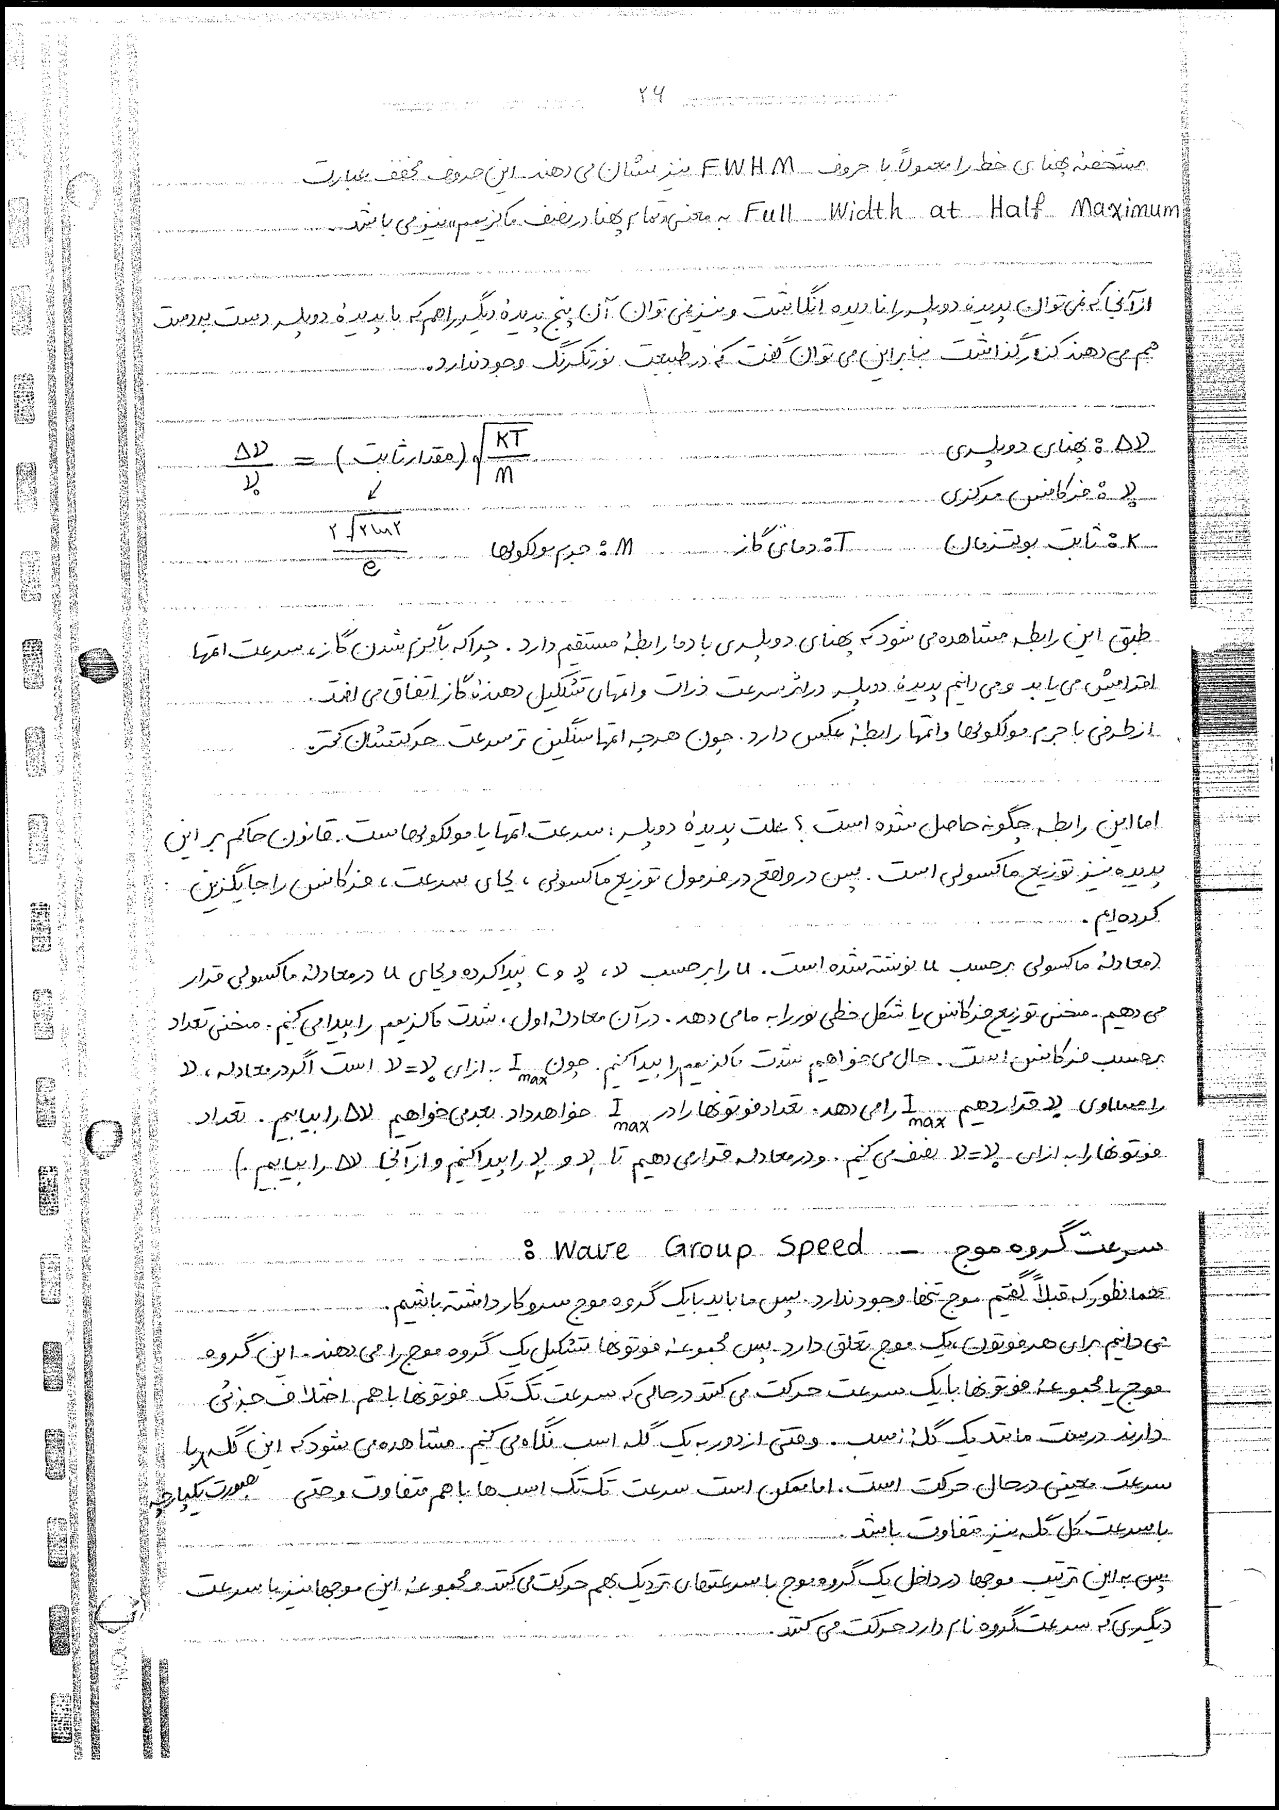 ۲۶
مشخصهٔ پهنای خط را معمولاً با حروف FWHM نیز نشان می دهند. این حروف مخفف عبارت
Full Width at Half Maximum به معنی «تمام پهنا در نصف ماکزیمم» نیز می باشد.
از آنجا که نمی توان پدیده دوپلر را نادیده انگاشت و نیز نمی توان آن پنج پدیدهٔ دیگر را هم که با پدیدهٔ دوپلر دست بدست
هم می دهند کنار گذاشت بنابراین می توان گفت که در طبیعت نور تکرنگ وجود ندارد.
Δν : پهنای دوپلری
Δν/ν₀ = (مقدار ثابت) √(KT/M)
ν₀ : فرکانس مرکزی
۲√۲ln۲ / c
K : ثابت بولتزمان T : دمای گاز M : جرم مولکولها
طبق این رابطه مشاهده می شود که پهنای دوپلری با دما رابطهٔ مستقیم دارد. چرا که با گرم شدن گاز، سرعت اتمها
افزایش می یابد و می دانیم پدیدهٔ دوپلر در اثر سرعت ذرات و اتمهای تشکیل دهندهٔ گاز اتفاق می افتد.
از طرفی با جرم مولکولها و اتمها رابطهٔ عکس دارد. چون هر چه اتمها سنگین تر سرعت حرکتشان کمتر.
اما این رابطه چگونه حاصل شده است؟ علت پدیدهٔ دوپلر، سرعت اتمها یا مولکولهاست. قانون حاکم بر این
پدیده نیز توزیع ماکسولی است. پس در واقع در فرمول توزیع ماکسولی، بجای سرعت، فرکانس را جایگزین
کرده ایم.
(معادلهٔ ماکسولی برحسب u نوشته شده است. u را برحسب ν، ν₀ و c پیدا کرده و بجای u در معادلهٔ ماکسولی قرار
می دهیم. منحنی توزیع فرکانس یا شکل خطی نور را به ما می دهد. در آن معادلهٔ اول، شدت ماکزیمم را پیدا می کنیم. منحنی تعداد
برحسب فرکانس است. حال می خواهیم شدت ماکزیمم را پیدا کنیم. چون I max به ازای ν=ν₀ است اگر در معادله، ν
را مساوی ν₀ قرار دهیم I max را می دهد. تعداد فوتونها را در I max خواهد داد. بعد می خواهیم Δν را بیابیم. تعداد
فوتونها را به ازای ν=ν₀ نصف می کنیم. و در معادله قرار می دهیم تا ν₁ و ν₂ را پیدا کنیم و از آنجا Δν را بیابیم.)
سرعت گروه موج – Wave Group Speed :
همانطور که قبلاً گفتیم موج تنها وجود ندارد. پس ما باید با یک گروه موج سر و کار داشته باشیم.
می دانیم برای هر فوتون، یک موج تعلق دارد. پس مجموعهٔ فوتونها تشکیل یک گروه موج را می دهند. این گروه
موج یا مجموعهٔ فوتونها با یک سرعت حرکت می کنند در حالی که سرعت تک تک فوتونها با هم اختلاف جزئی
دارند درست مانند یک گلهٔ اسب. وقتی از دور به یک گله اسب نگاه می کنیم. مشاهده می شود که این گله بصورت یکپارچه با
سرعت معینی در حال حرکت است. اما ممکن است سرعت تک تک اسب ها با هم متفاوت و حتی
با سرعت کل گله نیز متفاوت باشد.
پس به این ترتیب موجها در داخل یک گروه موج با سرعتهای نزدیک بهم حرکت می کنند و مجموعهٔ این موجها نیز با سرعت
دیگری که سرعت گروه نام دارد حرکت می کنند.